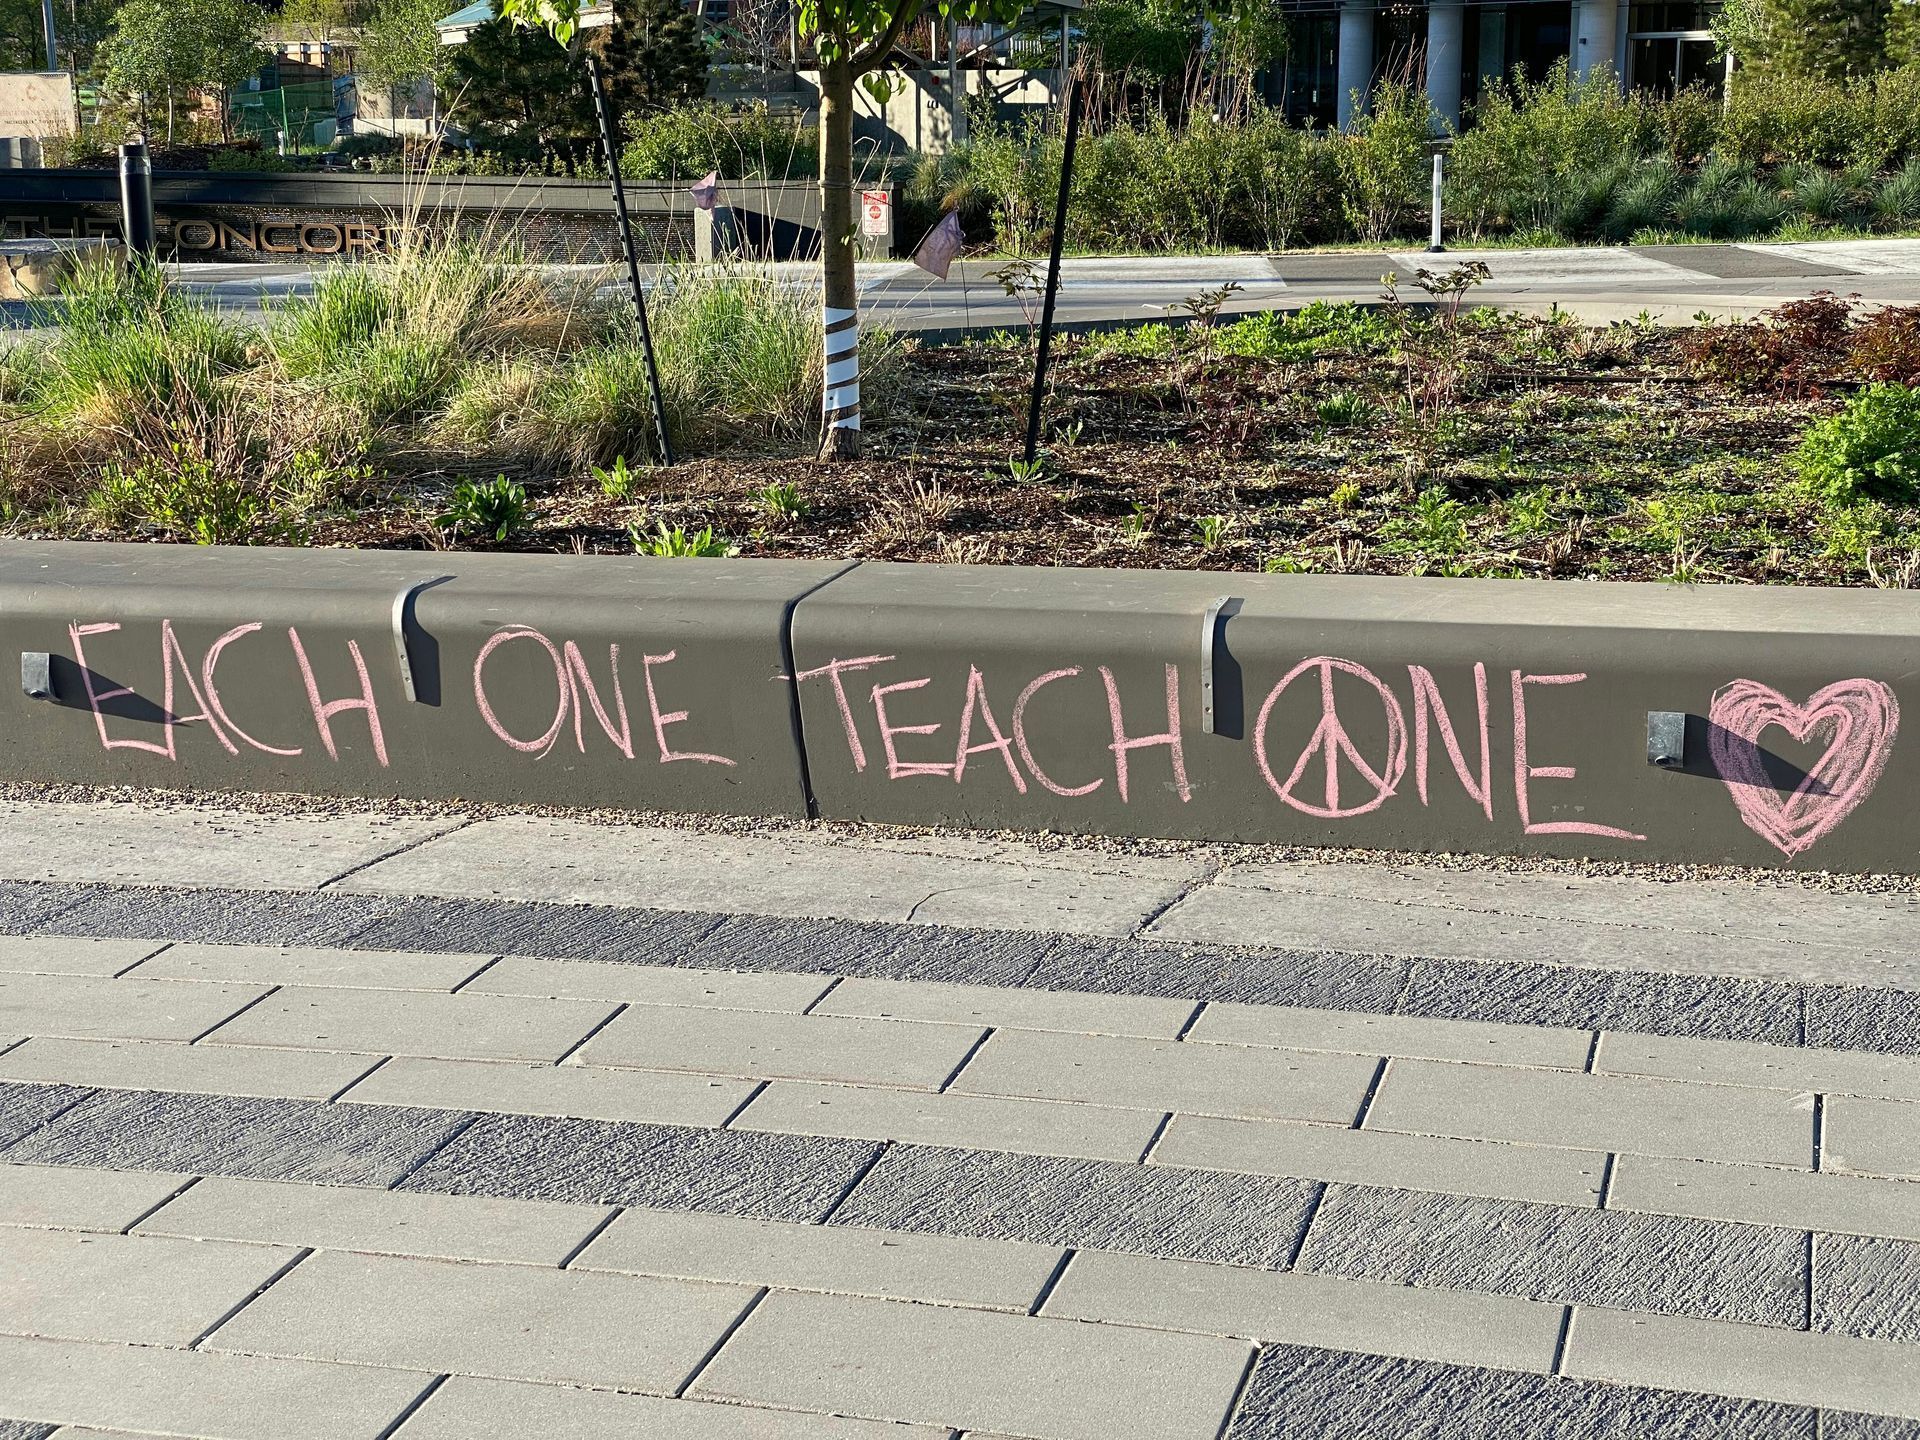 THE CONCORD
EACH ONE TEACH ONE